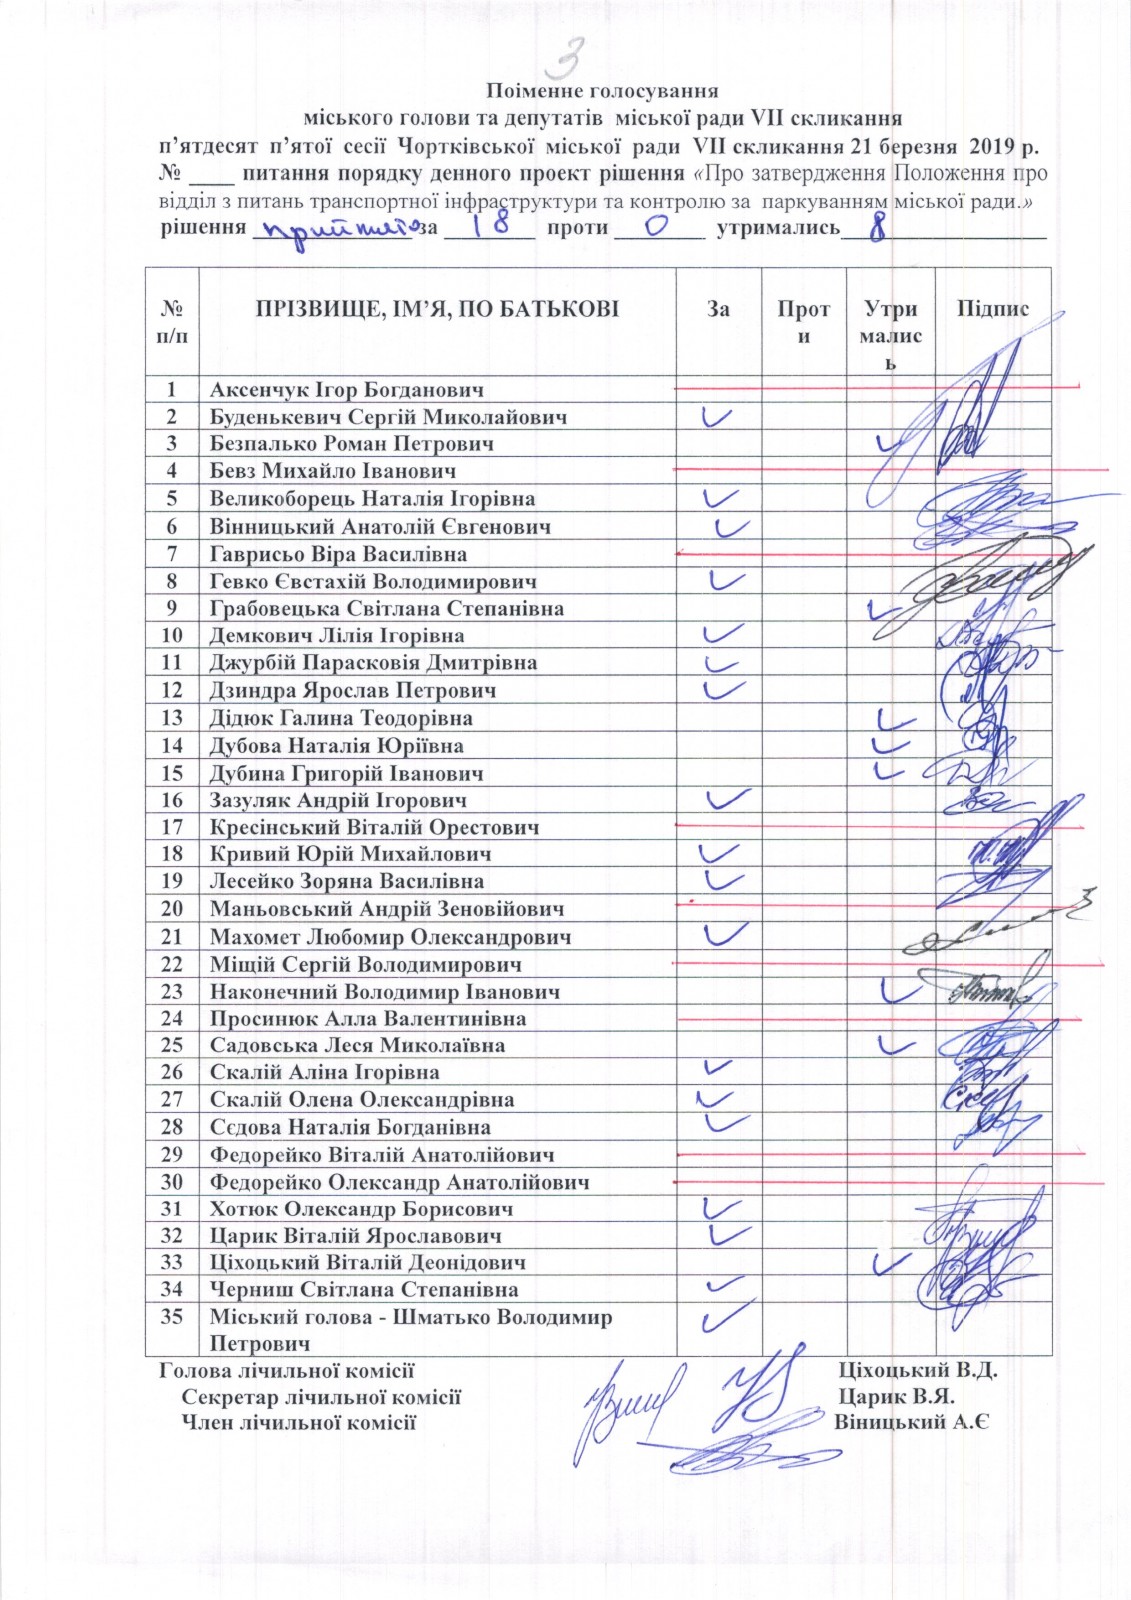 3
Поіменне голосування
міського голови та депутатів міської ради VII скликання
п’ятдесят п’ятої сесії Чортківської міської ради VII скликання 21 березня 2019 р.
№ ____ питання порядку денного проект рішення «Про затвердження Положення про
відділ з питань транспортної інфраструктури та контролю за паркуванням міської ради.»
рішення прийнято за 18 проти 0 утримались 8
№ п/п ПРІЗВИЩЕ, ІМ’Я, ПО БАТЬКОВІ За Проти Утрималисьь Підпис
1 Аксенчук Ігор Богданович
2 Буденькевич Сергій Миколайович ✓
3 Безпалько Роман Петрович ✓
4 Бевз Михайло Іванович
5 Великоборець Наталія Ігорівна ✓
6 Вінницький Анатолій Євгенович ✓
7 Гаврисьо Віра Василівна
8 Гевко Євстахій Володимирович ✓
9 Грабовецька Світлана Степанівна ✓
10 Демкович Лілія Ігорівна ✓
11 Джурбій Парасковія Дмитрівна ✓
12 Дзиндра Ярослав Петрович ✓
13 Дідюк Галина Теодорівна ✓
14 Дубова Наталія Юріївна ✓
15 Дубина Григорій Іванович ✓
16 Зазуляк Андрій Ігорович ✓
17 Кресінський Віталій Орестович
18 Кривий Юрій Михайлович ✓
19 Лесейко Зоряна Василівна ✓
20 Маньовський Андрій Зеновійович
21 Махомет Любомир Олександрович ✓
22 Міщій Сергій Володимирович
23 Наконечний Володимир Іванович ✓
24 Просинюк Алла Валентинівна
25 Садовська Леся Миколаївна ✓
26 Скалій Аліна Ігорівна ✓
27 Скалій Олена Олександрівна ✓
28 Сєдова Наталія Богданівна ✓
29 Федорейко Віталій Анатолійович
30 Федорейко Олександр Анатолійович
31 Хотюк Олександр Борисович ✓
32 Царик Віталій Ярославович ✓
33 Ціхоцький Віталій Деонідович ✓
34 Черниш Світлана Степанівна ✓
35 Міський голова - Шматько Володимир ✓
Петрович
Голова лічильної комісії Ціхоцький В.Д.
Секретар лічильної комісії Царик В.Я.
Член лічильної комісії Віницький А.Є